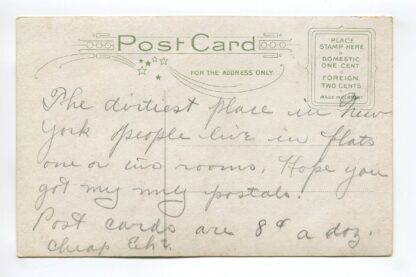 Post Card
FOR THE ADDRESS ONLY.
PLACE
STAMP HERE
DOMESTIC
ONE CENT
FOREIGN
TWO CENTS
MADE IN GERMANY
The dirtiest place in New
York people live in flats
one or two rooms. Hope you
got my postals.
Post cards are 8¢ a doz.
cheap Eh?